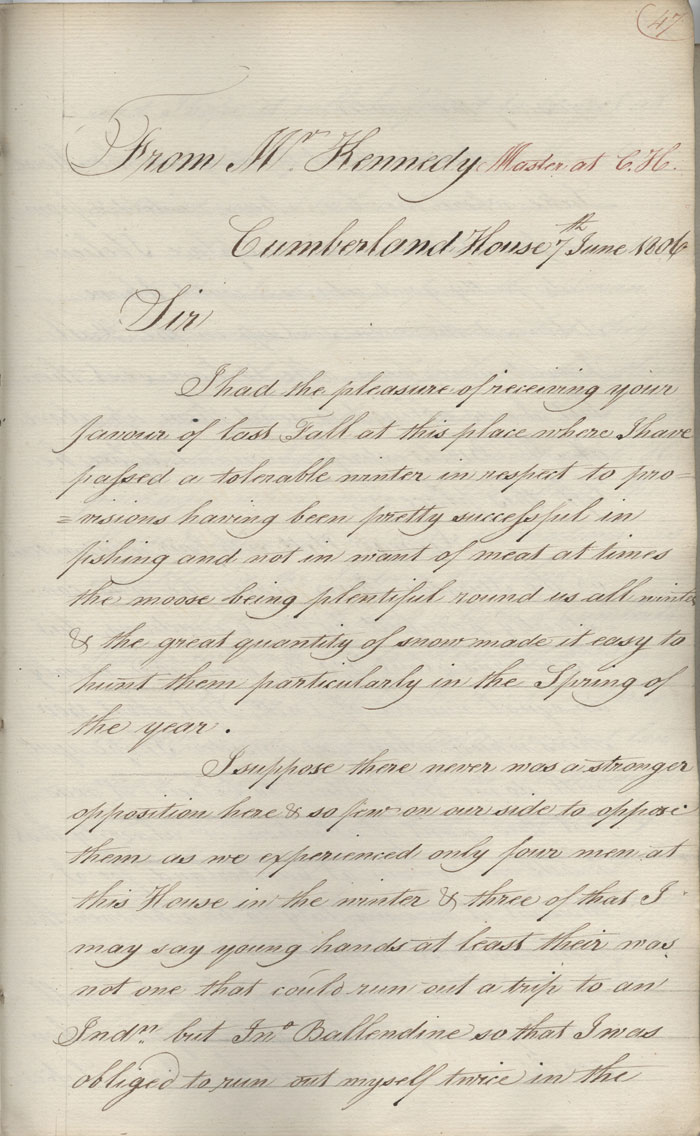 47
From Mr Kennedy Master at C. H.
Cumberland House 7th June 1806
Sir
I had the pleasure of receiving your
favour of last Fall at this place where I have
passed a tolerable winter in respect to pro=
=visions having been pretty successful in
fishing and not in want of meat at times
the moose being plentiful round us all winter
& the great quantity of snow made it easy to
hunt them particularly in the Spring of
the year.
I suppose there never was a stronger
opposition here & so few on our side to oppose
them as we experienced only four men at
this House in the winter & three of that I
may say young hands at least their was
not one that could run out a trip to an
Indn. but Jno Ballendine so that I was
obliged to run out myself twice in the